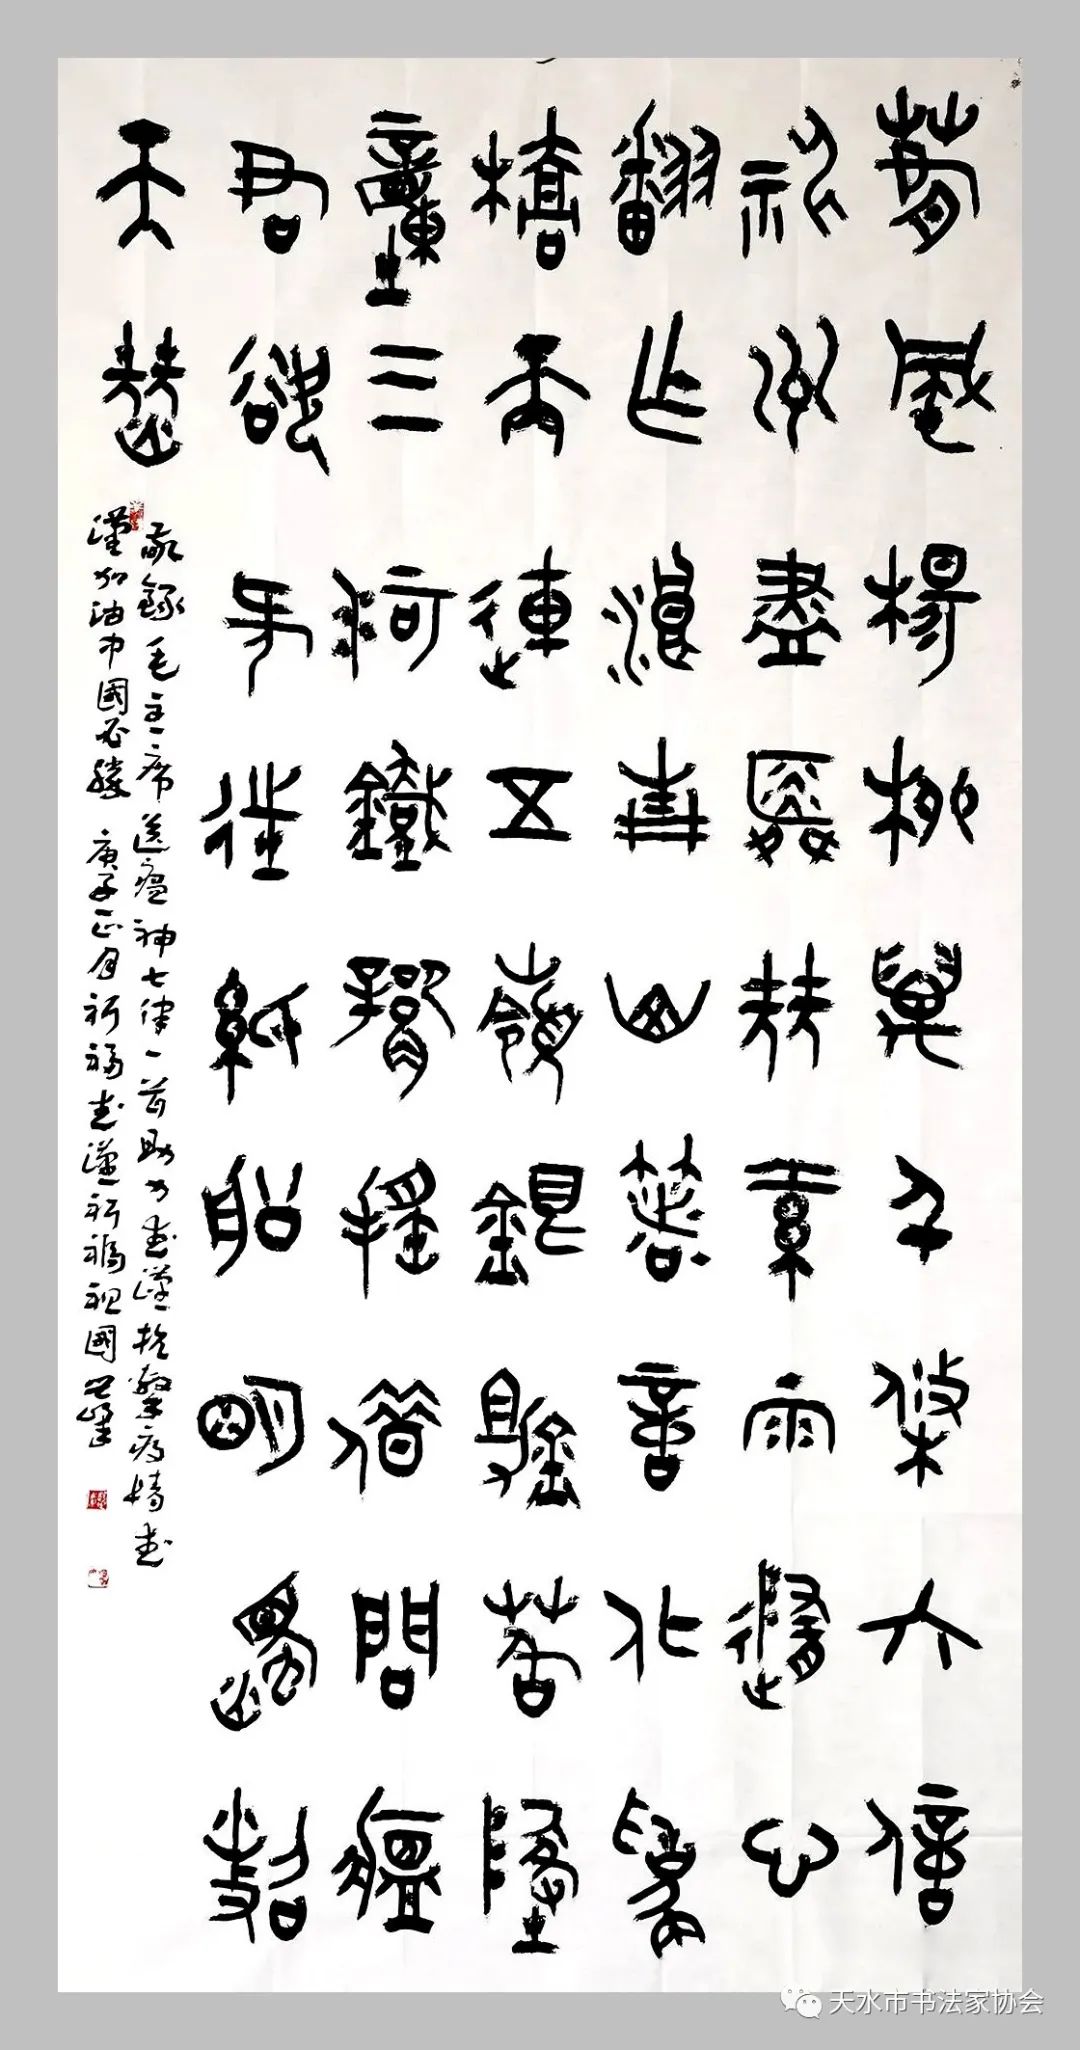 春風楊柳萬千條六億
神州盡舜堯紅雨隨心
翻作浪青山著意化為
橋天連五嶺銀鋤落地
動三河鐵臂搖借問瘟
君欲何往紙船明燭照
天燒
敬錄毛主席送瘟神七律一首助力武漢抗擊疫情武
漢加油中國必勝 庚子正月祈福武漢祈福祖國
天水市书法家协会